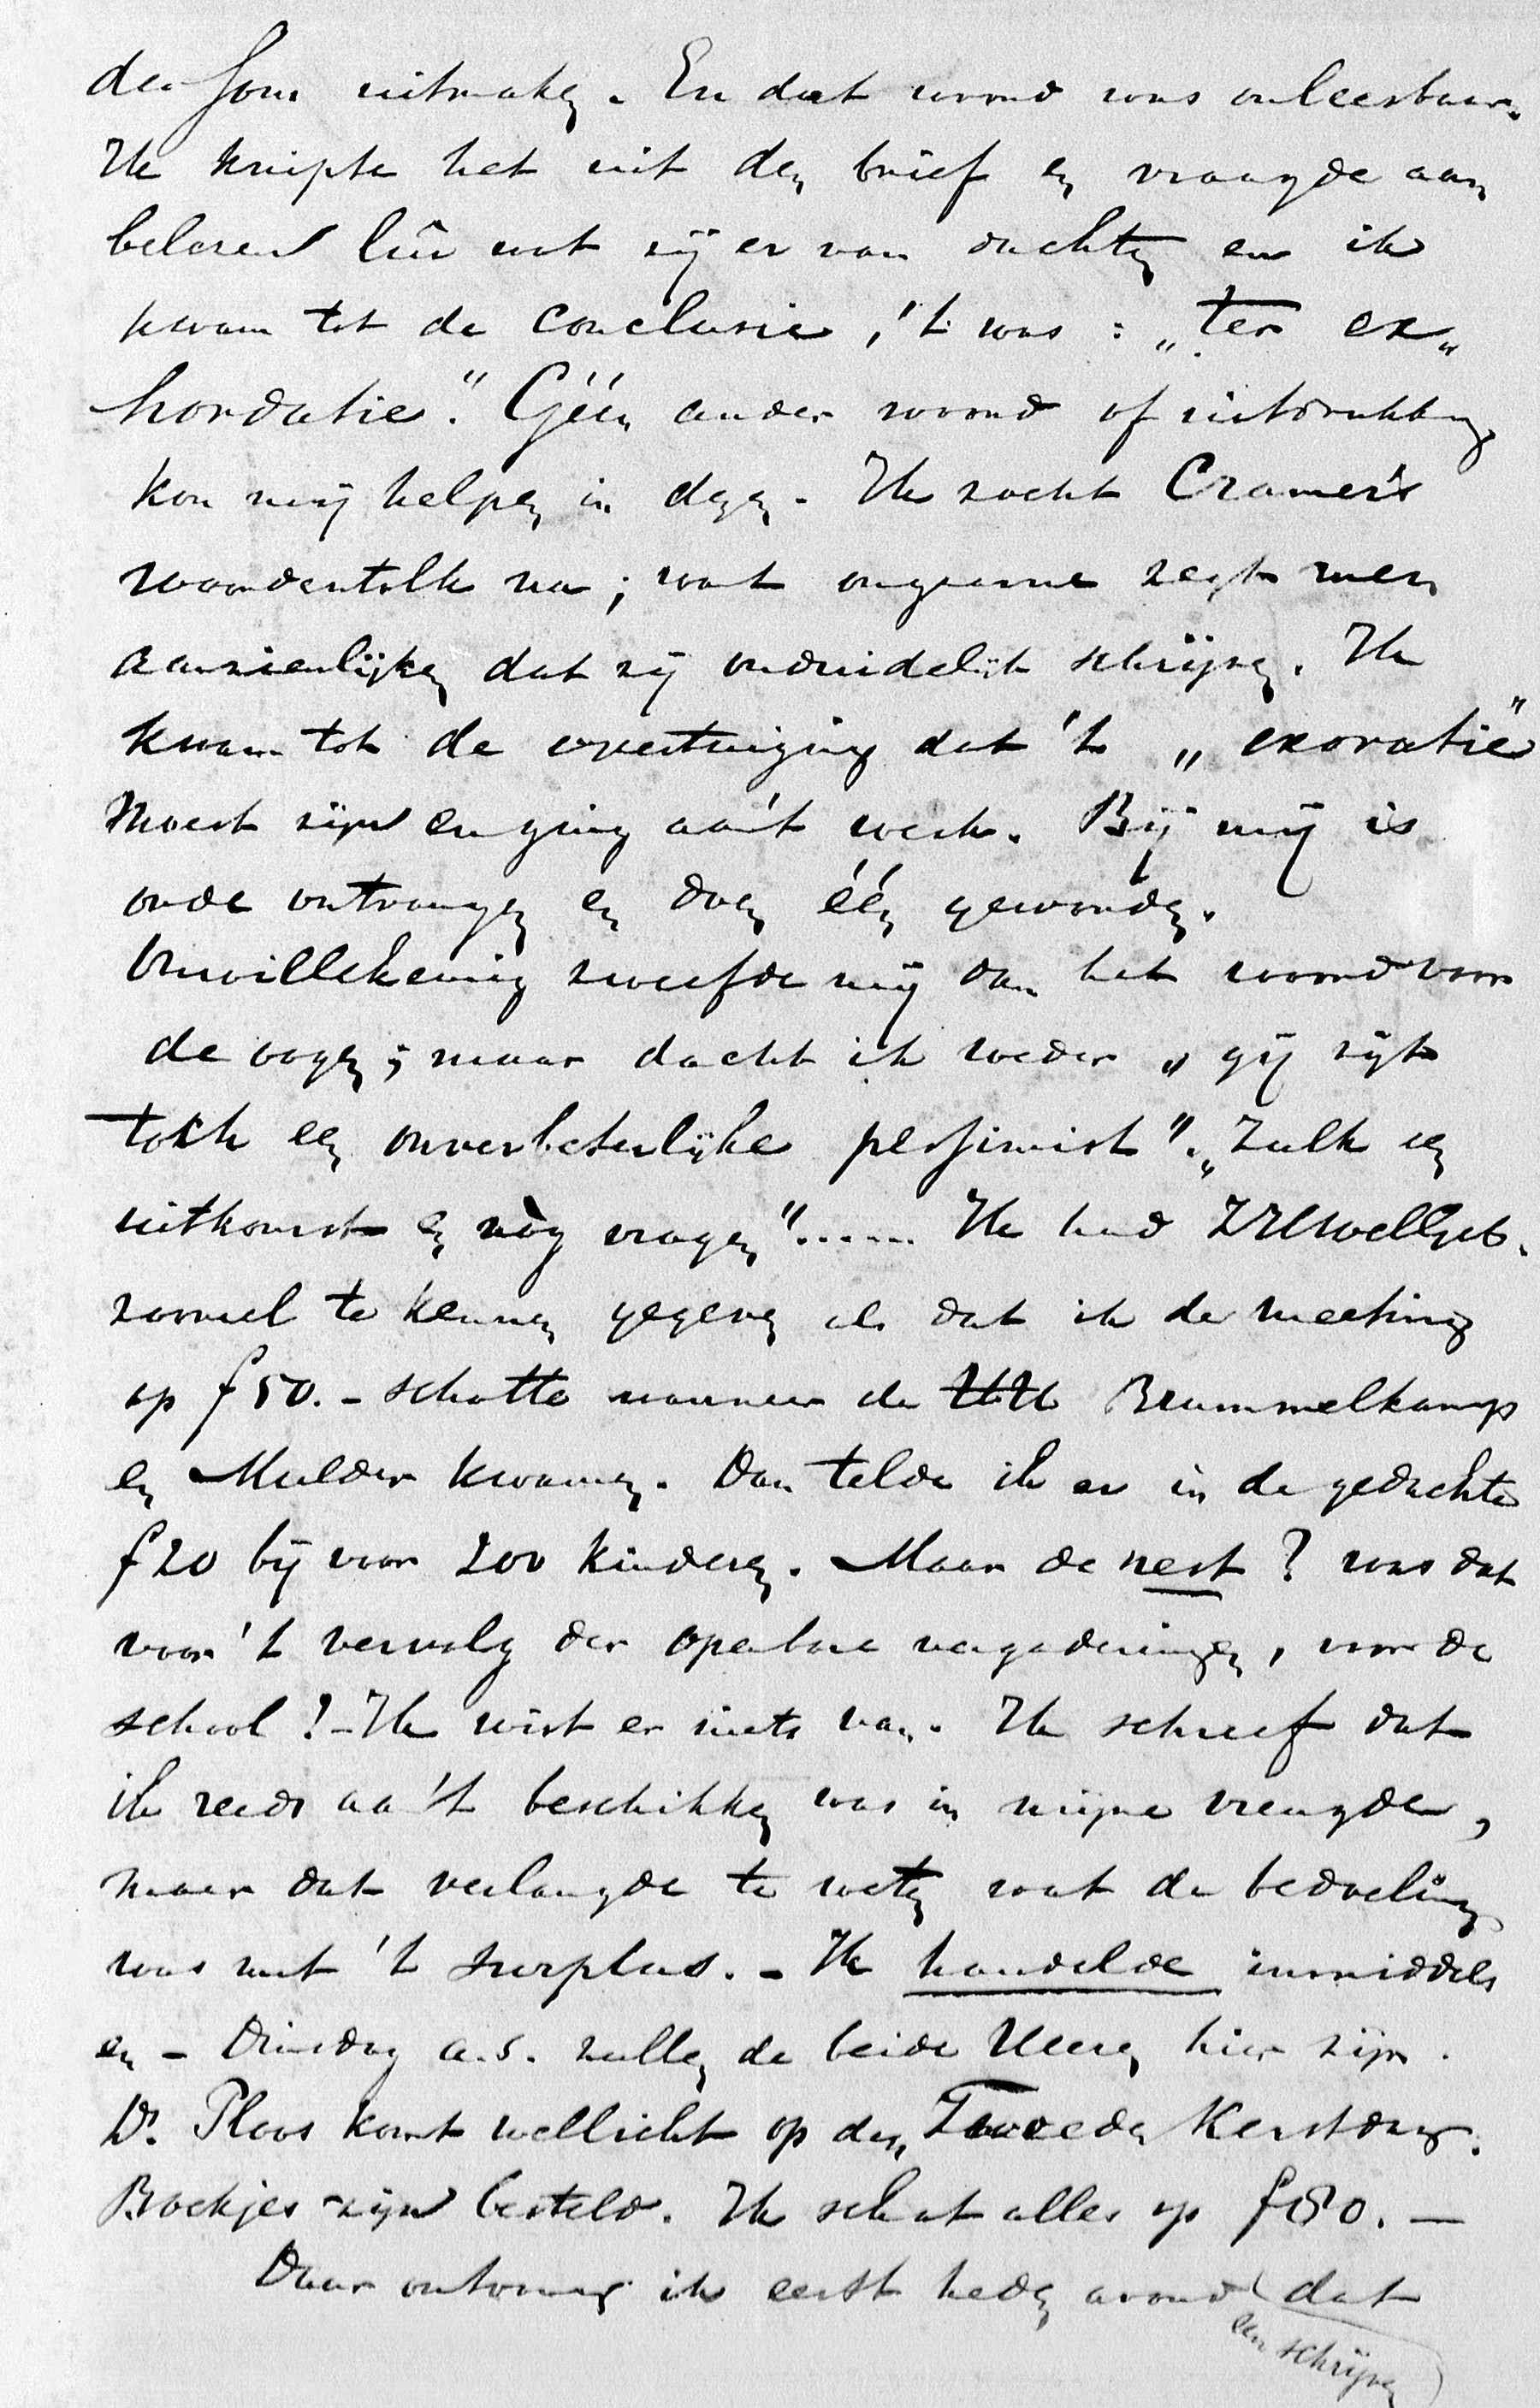 der som uitmaken. En dat woord was onleesbaar.
Ik knipte het uit den brief en vraagde aan
belezen liû wat zij er van dachten en ik
kwam tot de conclusie, 't was: „ter ex„
hordatie." Géén ander woord of uitdrukking
kon mij helpen in dezen. Ik zocht Cramer's
woordentolk na; want ongaarne zegt men
aanzienlijken dat zij onduidelijk schrijven. Ik
kwam tot de overtuiging dat 't „exoratie"
moest zijn en ging aan 't werk. Bij mij is
orde ontvangen en doen één geworden.
Onwillekeurig zweefde mij dan het woord voor
de oogen; maar dacht ik weder „gij zijt
toch een onverbeterlijke pessimist". „Zulk een
uitkomst en nòg vragen"...... Ik had ZHWelGeb.
zooveel te kennen gegeven als dat ik de meeting
op f 50.- schatte wanneer de HH Brummelkamp
en Mulder kwamen. Dan telde ik er in de gedachte
f 20 bij voor 200 kinderen. Maar de rest? was dat
voor 't vervolg der openbare vergaderingen, voor de
school? - Ik wist er niets van. Ik schreef dat
ik reeds aan 't beschikken was in mijne vreugde,
maar dat verlangde te weten wat de bedoeling
was met 't surplus. - Ik handelde inmiddels
en - Dinsdag a.s. zullen de beide Heeren hier zijn.
Ds. Ploos komt wellicht op den Tweeden Kerstdag.
Boekjes zijn besteld. Ik schat alles op f 80. —
Daar ontvang ik eerst heden avond dat
een schrijven